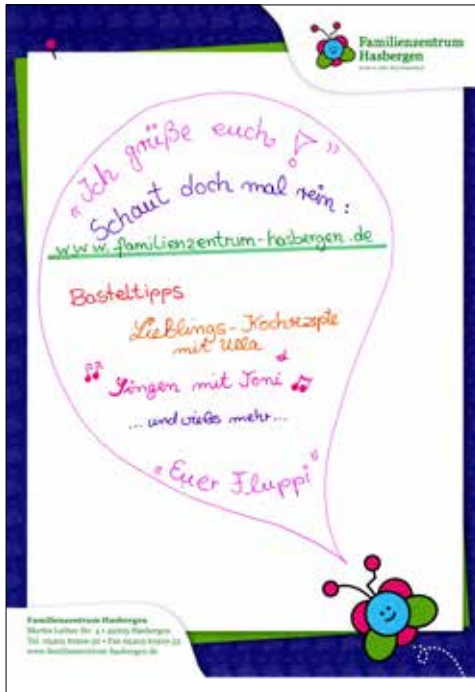 Familienzentrum
Hasbergen
„Ich grüße euch!"
Schaut doch mal rein:
www.familienzentrum-hasbergen.de
Basteltipps
Lieblings-Kochrezepte
mit Ulla
Singen mit Toni
...und vieles mehr...
„Euer Fluppi"
Familienzentrum Hasbergen
Martin-Luther-Str. 4 • 49205 Hasbergen
www.familienzentrum-hasbergen.de